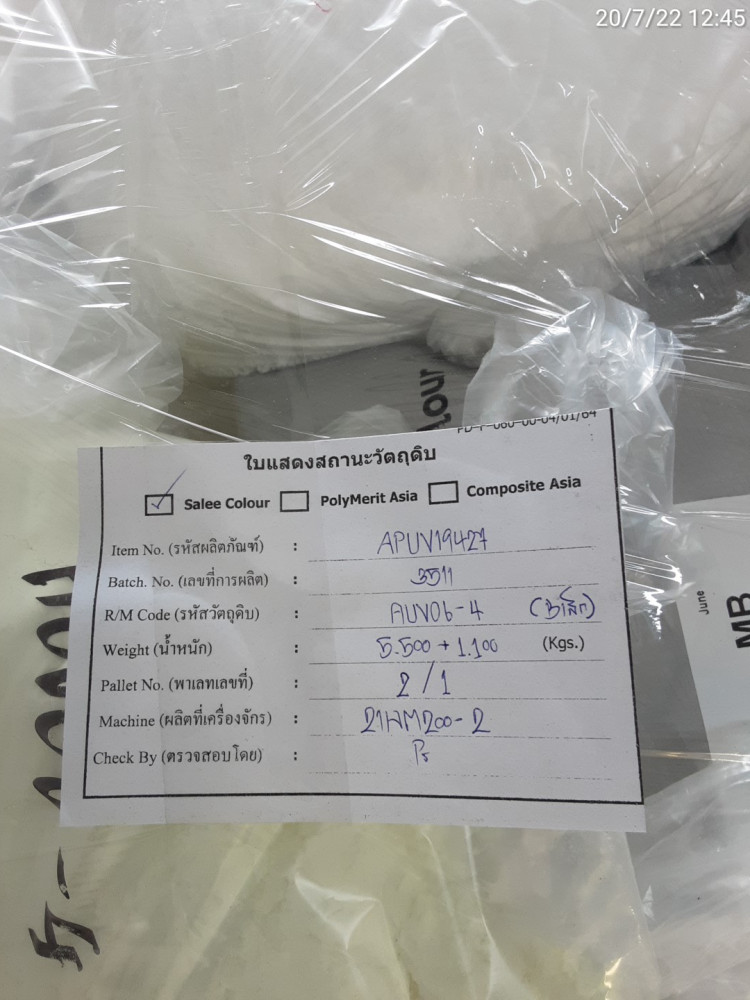 20/7/22 12:45
lour
ใบแสดงสถานะวัตถุดิบ
Salee Colour PolyMerit Asia Composite Asia
Item No. (รหัสผลิตภัณฑ์) : APUV19427
Batch. No. (เลขที่การผลิต) : 3511
R/M Code (รหัสวัตถุดิบ) : AUV06-4
Weight (น้ำหนัก) : 5.500 + 1.100 (Kgs.)
Pallet No. (พาเลทเลขที่) : 2/1
Machine (ผลิตที่เครื่องจักร) : 21HM200-2
Check By (ตรวจสอบโดย) :
June
MB